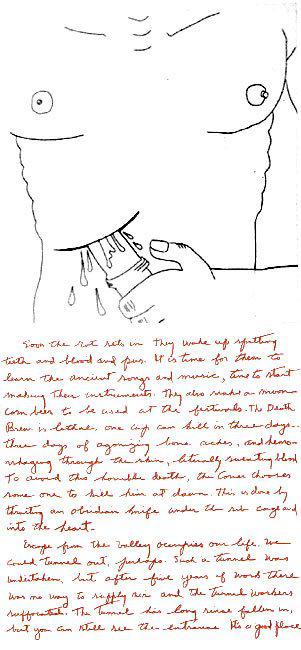 Soon the rot sets in They wake up spitting
teeth and blood and pus. It is time for them to
learn the ancient songs and music, time to start
making their instruments. They also make a moon
corn beer to be used at the festivals. The Death
Brew is lethal. one cup can kill in three days—
three days of agonizing bone aches, and hemor-
rhaging through the skin, literally sweating blood
To avoid this horrible death, the Comer chooses
some one to kill him at dawn. This is done by
thrusting an obsidian knife under the rib cage and
into the heart.
Escape from the valley occupies our life. We
could tunnel out, perhaps. Such a tunnel was
undertaken. but after five years of work there
was no way to supply air and the tunnel workers
suffocated. The tunnel has long since fallen in,
but you can still see the entrance Its a good place